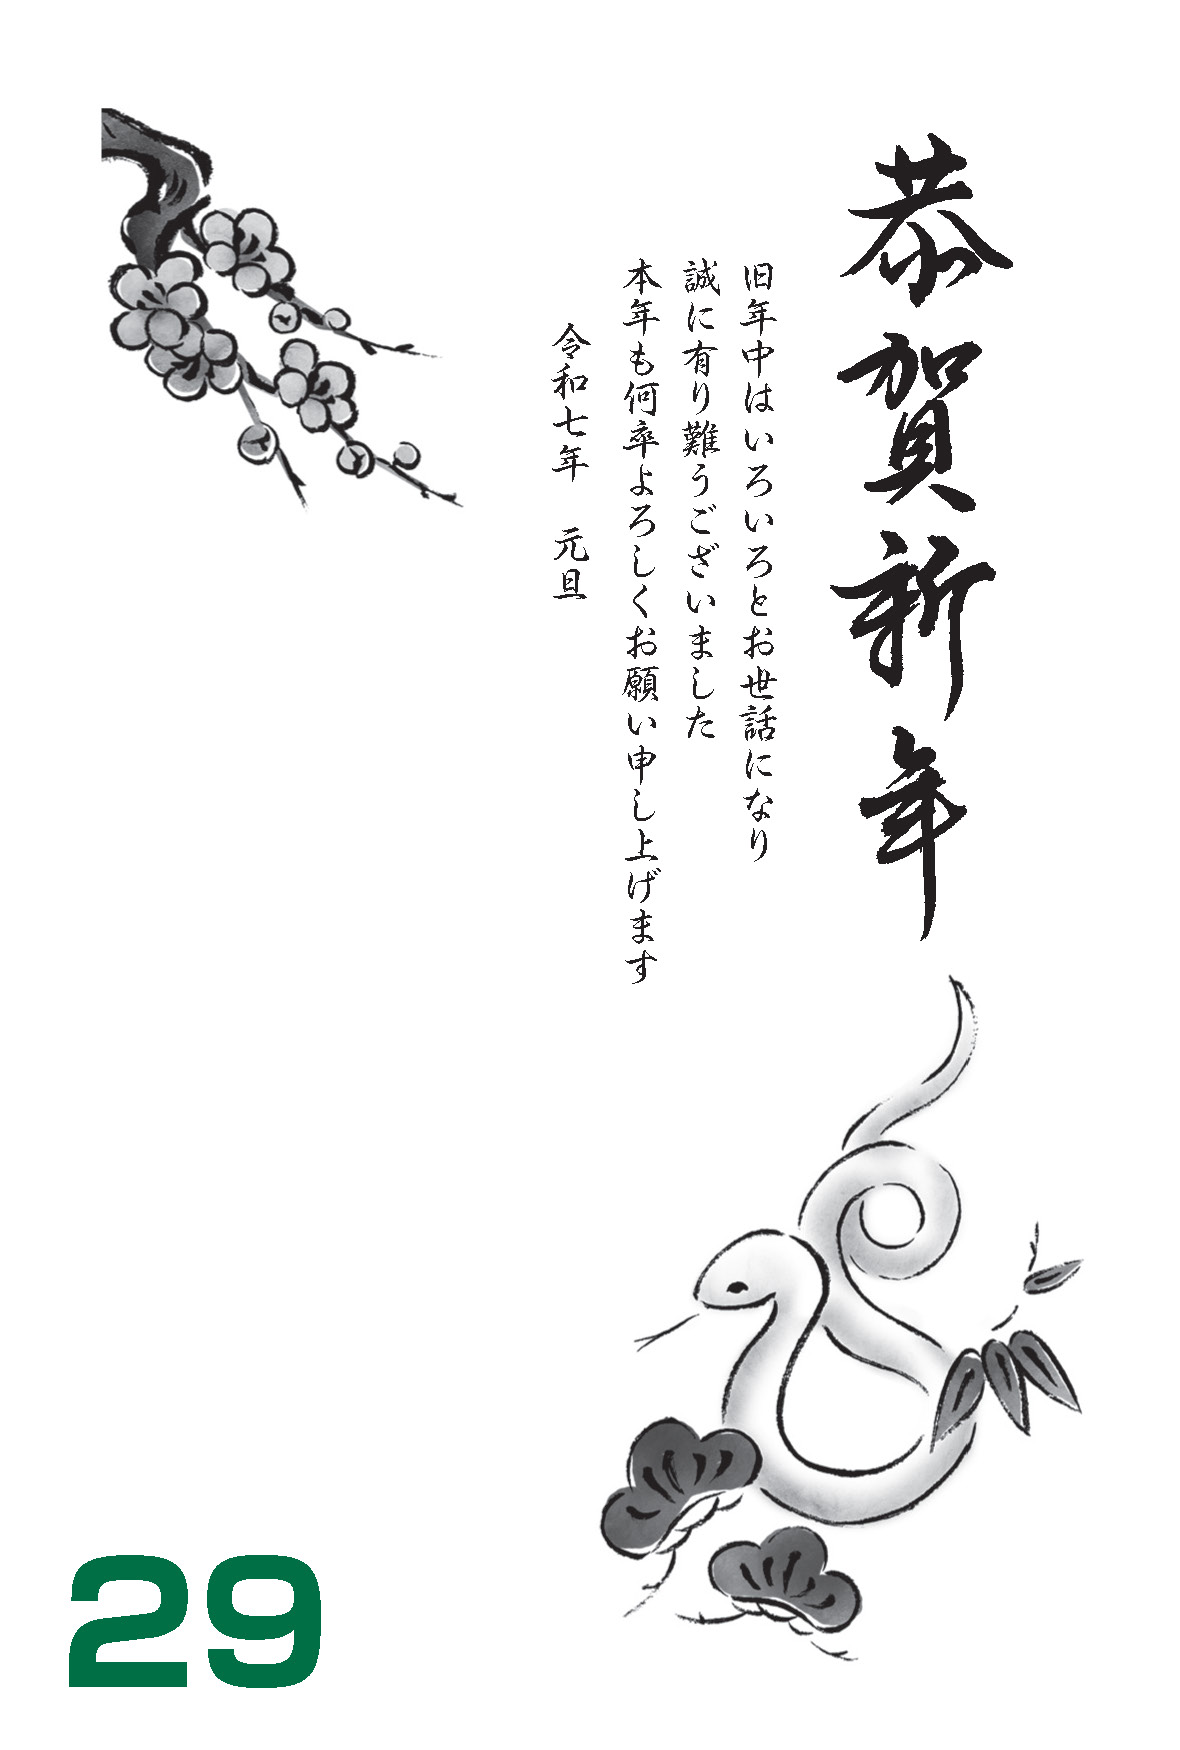 恭賀新年
旧年中はいろいろとお世話になり
誠に有り難うございました
本年も何卒よろしくお願い申し上げます
令和七年　元旦
29